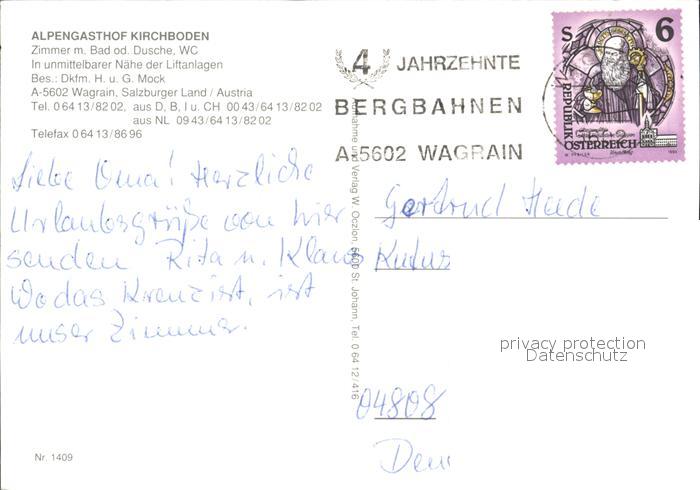 ALPENGASTHOF KIRCHBODEN
Zimmer m. Bad od. Dusche, WC
In unmittelbarer Nähe der Liftanlagen
Bes.: Dkfm. H. u. G. Mock
A-5602 Wagrain, Salzburger Land / Austria
Tel. 0 64 13 / 82 02, aus D, B, I u. CH 00 43 / 64 13 / 82 02
aus NL 09 43 / 64 13 / 82 02
Telefax 0 64 13 / 86 96
Liebe Oma! Herzliche
Urlaubsgrüße von hier
senden Rita u. Klaus
Wo das Kreuz ist, ist
unser Zimmer.
Nr. 1409
Verlag W. Oczlon, 5600 St. Johann, Tel. 0 64 12 / 416
4 JAHRZEHNTE
BERGBAHNEN
A-5602 WAGRAIN
S 6
REPUBLIK
ÖSTERREICH
Gertrud
04808
privacy protection
Datenschutz